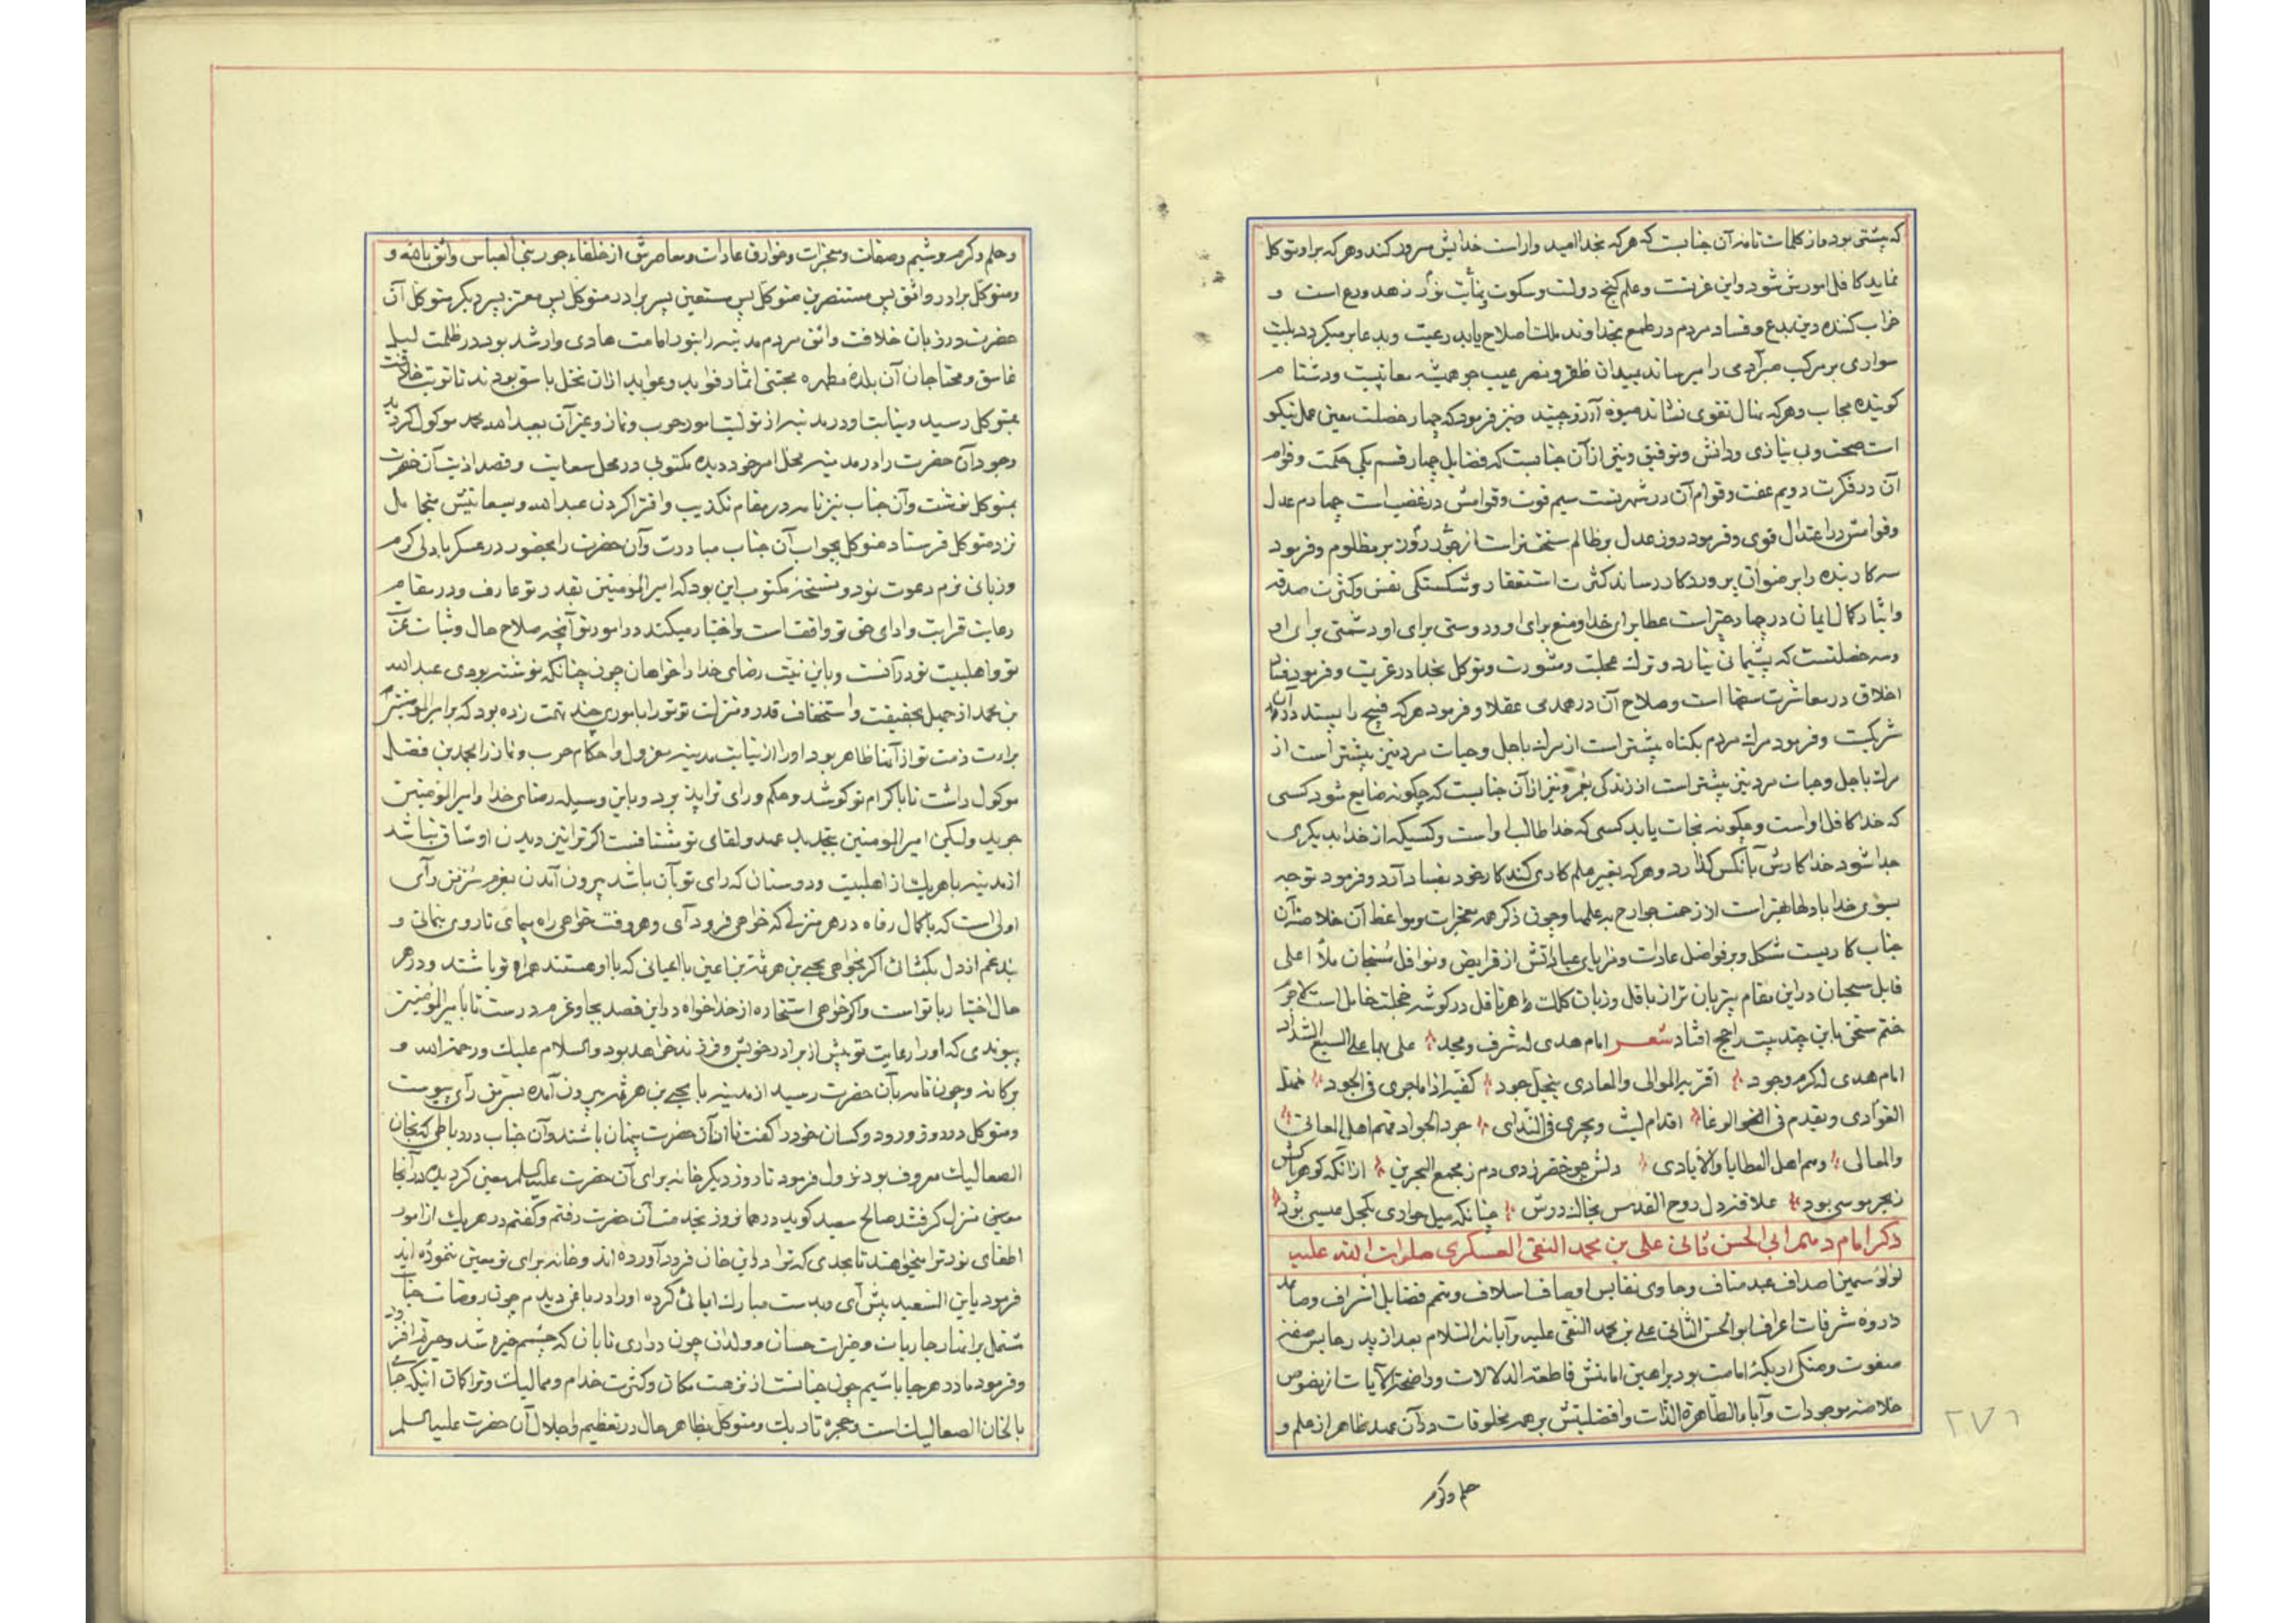 که پشتی بود و از کلمات تامه آن جنابست که هرکه بخدا امید وار است خدایش سرور کند و هرکه براو توکل
نماید کافل امورش شود و این عزتست و علم گنج دولت و سکوت نشأیت نور زهد ورع است و
خراب کننده دین بدع و فساد مردم در طمع بخداوند ملک اصلاح یابد رعیت و بدعا بر میگردد بلیت
سواری بر مرکب صبر آدمی را میرساند بمیدان ظفر و نصر عیب جو همیشه معایبست و دشنام
گوینده مجاب و هرکه نهال تقوی نشاند میوه آرزو چیند و نیز فرمود که چهار خصلت معین عمل نیکو
است صحت و بی نیازی و دانش و توفیق و نیز از آن جنابست که فضایل چهار قسم یکی حکمت و قوام
آن در فکرت دویم عفت و قوام آن در شهوتست سیم قوت و قوامش در غضب است چهارم عدل
و قوامش در اعتدال قوی و فرمود روز عدل بر ظالم سخت تر است از جور روز بر مظلوم و فرمود
سه کار بنده را بر ضوان پروردگار رساند کثرت استغفار و شکستگی نفس و کثرت صدقه
و ایثار کمال ایمان در چهار چیز است عطا برای خدا و منع برای او و دوستی برای او دشمنی برای او
و سه خصلتست که پشیمانی نیارد و ترک عجلت و مشورت و توکل بخدا در عزیمت و فرمود فساد
اخلاق در معاشرت سفها است و صلاح آن در همدمی عقلا و فرمود هرکه قبیح را پسندد در آن
شریکست و فرمود مرک مردم بگناه بیشتر است از مرک باجل و حیات مردنین بیشتر است از
مرک باجل و حیات مردنین بیشتر است از زندگی بعمر و نیز از آن جنابست که چگونه ضایع شود کسی
که خدا کافل او است و چگونه نجات یابد کسی که خدا طالب او است و کسیکه از خدا بدیگری
جدا شود خدا کارش بآنکس گذارد و هرکه بغیر علم کاری کند کار خود بفساد آرد و فرمود توجه
بسوی خدا بادلها بهتر است از زحمت جوارح به علمها و چون ذکر همه معجزات و مواعظ آن خلاصه آن
جناب کاریست مشکل و بر فواضل عادات و مزایای عباداتش از فرایض و نوافل سنجان ملأ اعلی
قابل سبحان در این مقام بتر بان تر از باقل و زبان کلک ماهر ناقل در گوشه خجلت خامل است
ختم سخن باین چند بیت راجح افتاد شعر امام هدی له شرف و مجد علی بها علی السبع الشداد
امام هدی له کرم وجود اقربه الموالی و المعادی بنخیل جود کفیه اذا ما جری فی الجود
الغوادی و یقدم فی الوغا اقدام لیث و یجری فی الندی جود الجواد فهم اهل المعانی
والمعالی وهم اهل العطایا والایادی دلش چو خضر زدی دم ز مجمع البحرین از آنکه گوهر پاکش
ز بحر موسی بود علاقه دل روح القدس بخاک درش چنانکه میل حواری بکحل عیسی بود
ذکر امام دهم ابی الحسن ثانی علی بن محمد النقی العسکری صلوات الله علیه
لؤلؤ سمین اصداف عبد مناف و حاوی نفایس اوصاف اسلاف و متمم فضایل اشراف و صاعد
ذروه شرفات اعراف ابو الحسن الثانی علی بن محمد النقی علیه و آبائه السلام بعد از پدر جالس صفه
صفوت و متکی اریکه امامت بود براهین امامتش قاطعة الدلالات و واضحة الآیات از نصوص
خلاصه موجودات و آباء الطاهرة الذات و افضلیتش بر همه مخلوقات در آن عهد ظاهر از علم و
حلم و کرم
۲۷۶
و حلم و کرم و شیم و صفات و معجزات و خوارق عادات و معاصرش از خلفاء جور بنی العباس واثق بالله و
و متوکل برادر واثق پس مستنصر بن متوکل پس مستعین پسر برادر متوکل پس معتز پسر دیگر متوکل آن
حضرت در زمان خلافت واثق مردم مدینه را بنور امامت هادی و ارشد بود در ظلمت لیل
غاسق و محتاجان آن بلده مطهره مجتنی اثمار فواید و عواید از آن نخل باسق بودند تا نوبت خلافت
بمتوکل رسید و نیابت او در مدینه از تولیت امور حرب و نماز و غیر آن بعبدالله محمد موکول گردید
وجود آن حضرت را در مدینه مخل امر خود دیده مکتوبی در محل سعایت و قصد اذیت آن حضرت
بمتوکل نوشت و آن جناب نیز نامه در مقام تکذیب و افترا کردن عبدالله و سعایتش
نزد متوکل فرستاد متوکل بجواب آن جناب مبادرت و آن حضرت را بحضور در عسکر با دلی گرم
و زبانی نرم دعوت نمود و نسخه مکتوب این بود که امیر المؤمنین بقدر تو عارف و در مقام
رعایت قرابت و ادای حق تو واقفست و اختیار میکند در امور تو آنچه صلاح حال و ثبات عزت
تو و اهلبیت تو در آنست و باین نیت رضای خدا را خواهان چون چنانکه نوشته بودی عبدالله
بن محمد از جهل بحقیقت و استخفاف قدر و منزلت تو تو را باموری چند تهمت زده بود که بر امیر المؤمنین
براءت ذمت تو از آنها ظاهر بود او را از نیابت مدینه معزول و احکام حرب و نماز را بمحمد بن فضل
موکول داشت تا باکرام تو کوشد و حکم و رای ترا پذیرد و باین وسیله رضای خدا و امیر المؤمنین
جوید ولیکن امیر المؤمنین بتجدید عهد و لقای تو مشتاقست اگر ترا نیز دیدن او شاق نباشد
از مدینه با هریک از اهلبیت و دوستان که رای تو بآن باشد بیرون آمدن بعزم سر من رآی
اولی است که با کمال رفاه در هر منزلی که خواهی فرود آی و هر وقت خواهی راه پیمای تا روی بنمائی و
بند غم از دل بگشائی اگر بخواهی یحیی بن هرثمة بن اعین با اعیانی که با او هستند همراه تو باشند و در هر
حال اختیار با تو است و اگر خواهی استخاره از خدا خواه در این قصد بجا و عزم درست تا با امیر المؤمنین
پیوندی که او را رعایت تو بیش از برادر خویش و فرزند خواهد بود و السلام علیک و رحمة الله و
برکاته و چون نامه بآن حضرت رسید از مدینه با یحیی بن هرثمه بیرون آمده بسر من رآی پیوست
و متوکل در روز ورود و کسان خود را گفت تا از آن حضرت پنهان باشند و آن جناب در رباطی که بخان
الصعالیک معروف بود نزول فرمود تا روز دیگر خانه برای آن حضرت علیه السلم معین گردیده در آنجا
معینی منزل گرفتند صالح سعید گوید در همان روز بخدمت آن حضرت رفتم و گفتم در هر یک از امور
اطفای نور ترا میخواهند تا بحدی که ترا در این خان فرود آورده اند و خانه برای تو معین ننموده اند
فرمود یابن السعید پیش آی و بدست مبارک ایمائی کرده او را در باغی دیدم چون روضات جنات
مشتمل بر انهار جاریات و خیرات حسان و ولدان چون دراری تابان که چشم خیره شد و حیرتم افزود
و فرمود ما در هر جا باشیم چون جنانست از نزهت مکان و کثرت خدام و ممالیک و تراکان اینکه جای
ما بالخان الصعالیک است و حجره تاریک و متوکل بظاهر حال در تعظیم و اجلال آن حضرت علیه السلم